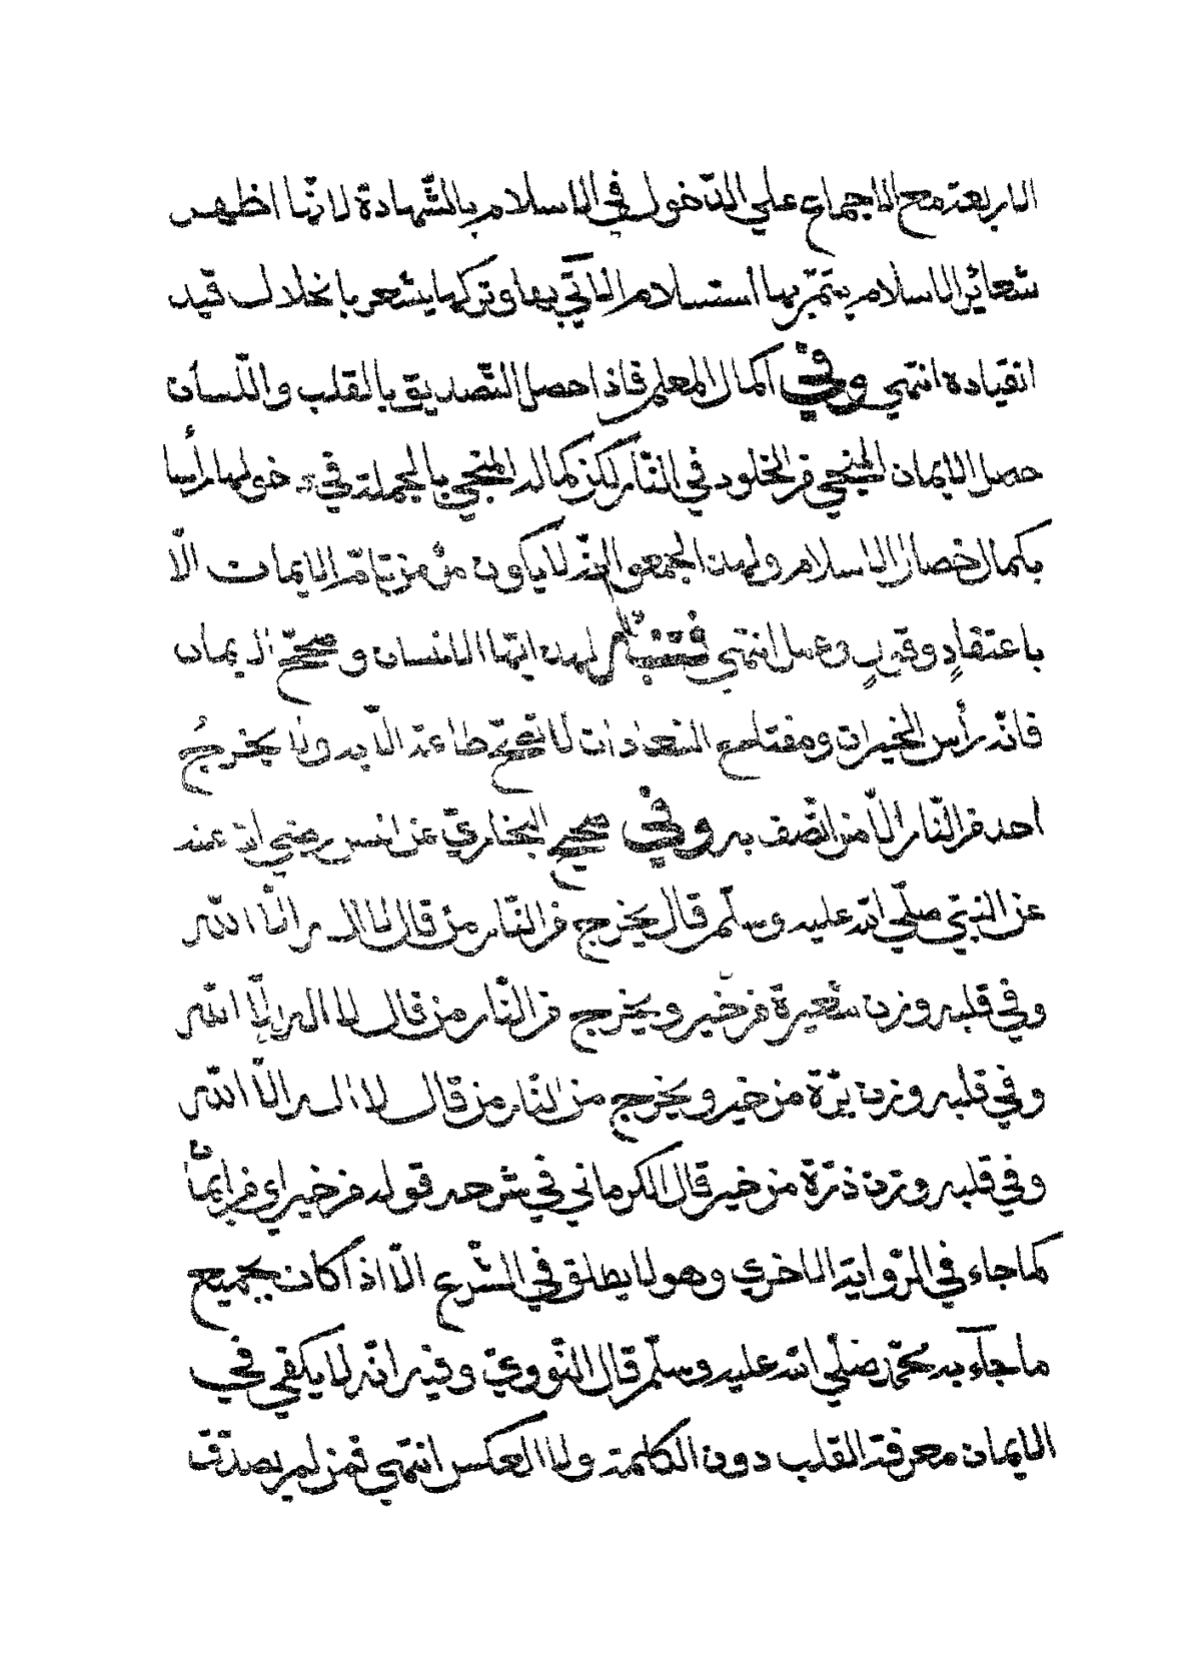 الاربعة مع الاجماع علي الدّخول في الاسلام بالشّهادة لانّها اظهر
شعائر الاسلام بتميّز بها استسلام الآتي بها وتركها يشعر بانخلال قيد
انقياده انتهي وفي اكمال المعلم فاذا حصل التّصديق بالقلب واللّسان
حصل الايمان المنجي من الخلود في النّار لكن كماله المنجي بالجملة في دخولها رأسا
بكمال خصال الاسلام ولهذا اجمعوا انّه لا يكون مؤمن تامّ الايمان الّا
باعتقادٍ وقولٍ وعمل انتهي فتنبّه لهذا ايّها الانسان وصحّح الايمان
فانّه رأس الخيرات ومفتاح السّعادات لا تصحّ طاعة الّا به ولا يخرجُ
احد من النّار الّا من اتّصف به وفي صحيح البخاريّ عن انس رضي الله عنه
عن النبيّ صلّي الله عليه وسلّم قال يخرج من النّار من قال لا اله الّا اللّه
وفي قلبه وزن شعيرة من خير ويخرج من النّار من قال لا اله الّا اللّه
وفي قلبه وزن برّة من خير ويخرج من النّار من قال لا اله الّا اللّه
وفي قلبه وزن ذرّة من خير قال الكرماني في شرحه قوله من خير اي من ايمان
كما جاء في الرّواية الاخري وهو لا يطلق في الشّرع الّا اذا كان بجميع
ما جآء به محمّد صلّي الله عليه وسلّم قال النّوويّ وفيه انّه لا يكفي في
الايمان معرفة القلب دون الكلمة ولا العكس انتهي فمن لم يصدّق